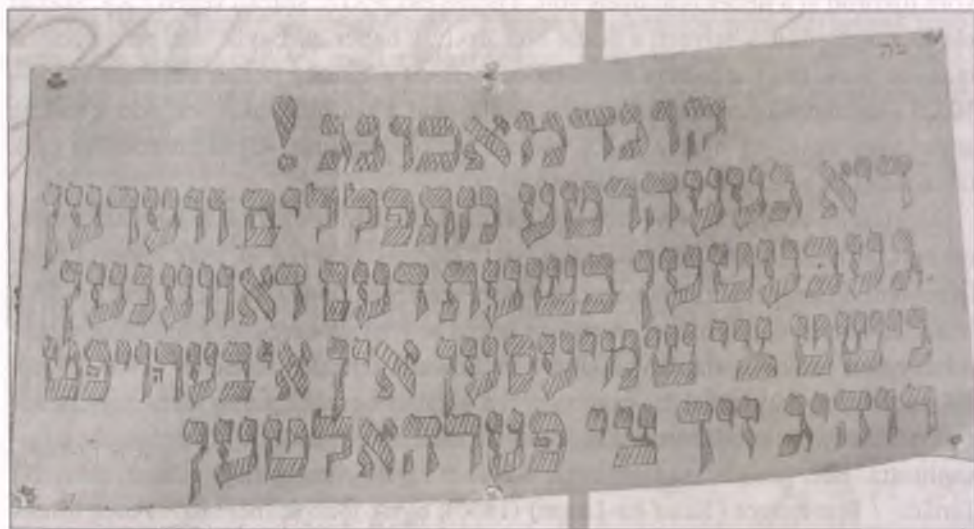 בה
קונדמאכונג !
דיא געעהרטע מתפללים ווערדען
געבעטען בשעת דעם דאווענען
נישט צי שמיעסען אין איבערהויפט
רוהיג זיך צי פערהאלטען